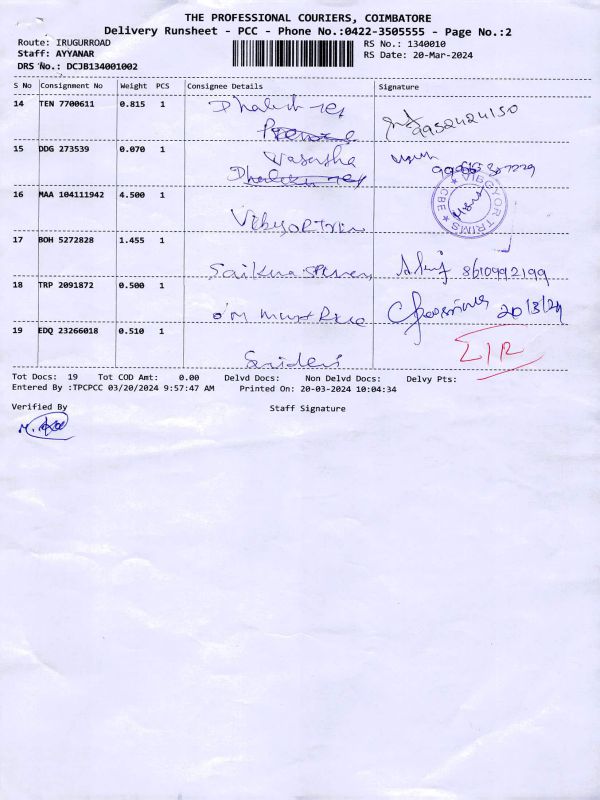 THE PROFESSIONAL COURIERS, COIMBATORE
Delivery Runsheet - PCC - Phone No.:0422-3505555 - Page No.:2
Route: IRUGURROAD
RS No.: 1340010
Staff: AYYANAR
RS Date: 20-Mar-2024
DRS No.: DCJB134001002
S No Consignment No Weight PCS Consignee Details Signature
14 TEN 7700611 0.815 1
9952424150
15 DDG 273539 0.070 1 Vasantha
16 MAA 104111942 4.500 1
VIBGYOR TRIMS CBE
17 BOH 5272828 1.455 1
8610992199
18 TRP 2091872 0.500 1
20/3/24
19 EDQ 23266018 0.510 1
Sridevi
Tot Docs: 19 Tot COD Amt: 0.00 Delvd Docs: Non Delvd Docs: Delvy Pts:
Entered By :TPCPCC 03/20/2024 9:57:47 AM Printed On: 20-03-2024 10:04:34
Verified By Staff Signature